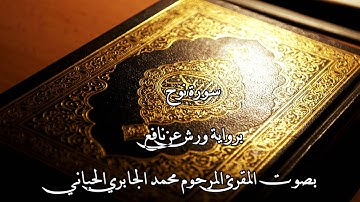 سورة نوح
برواية ورش عن نافع
بصوت المقرئ المرحوم محمد الجابري الحياني